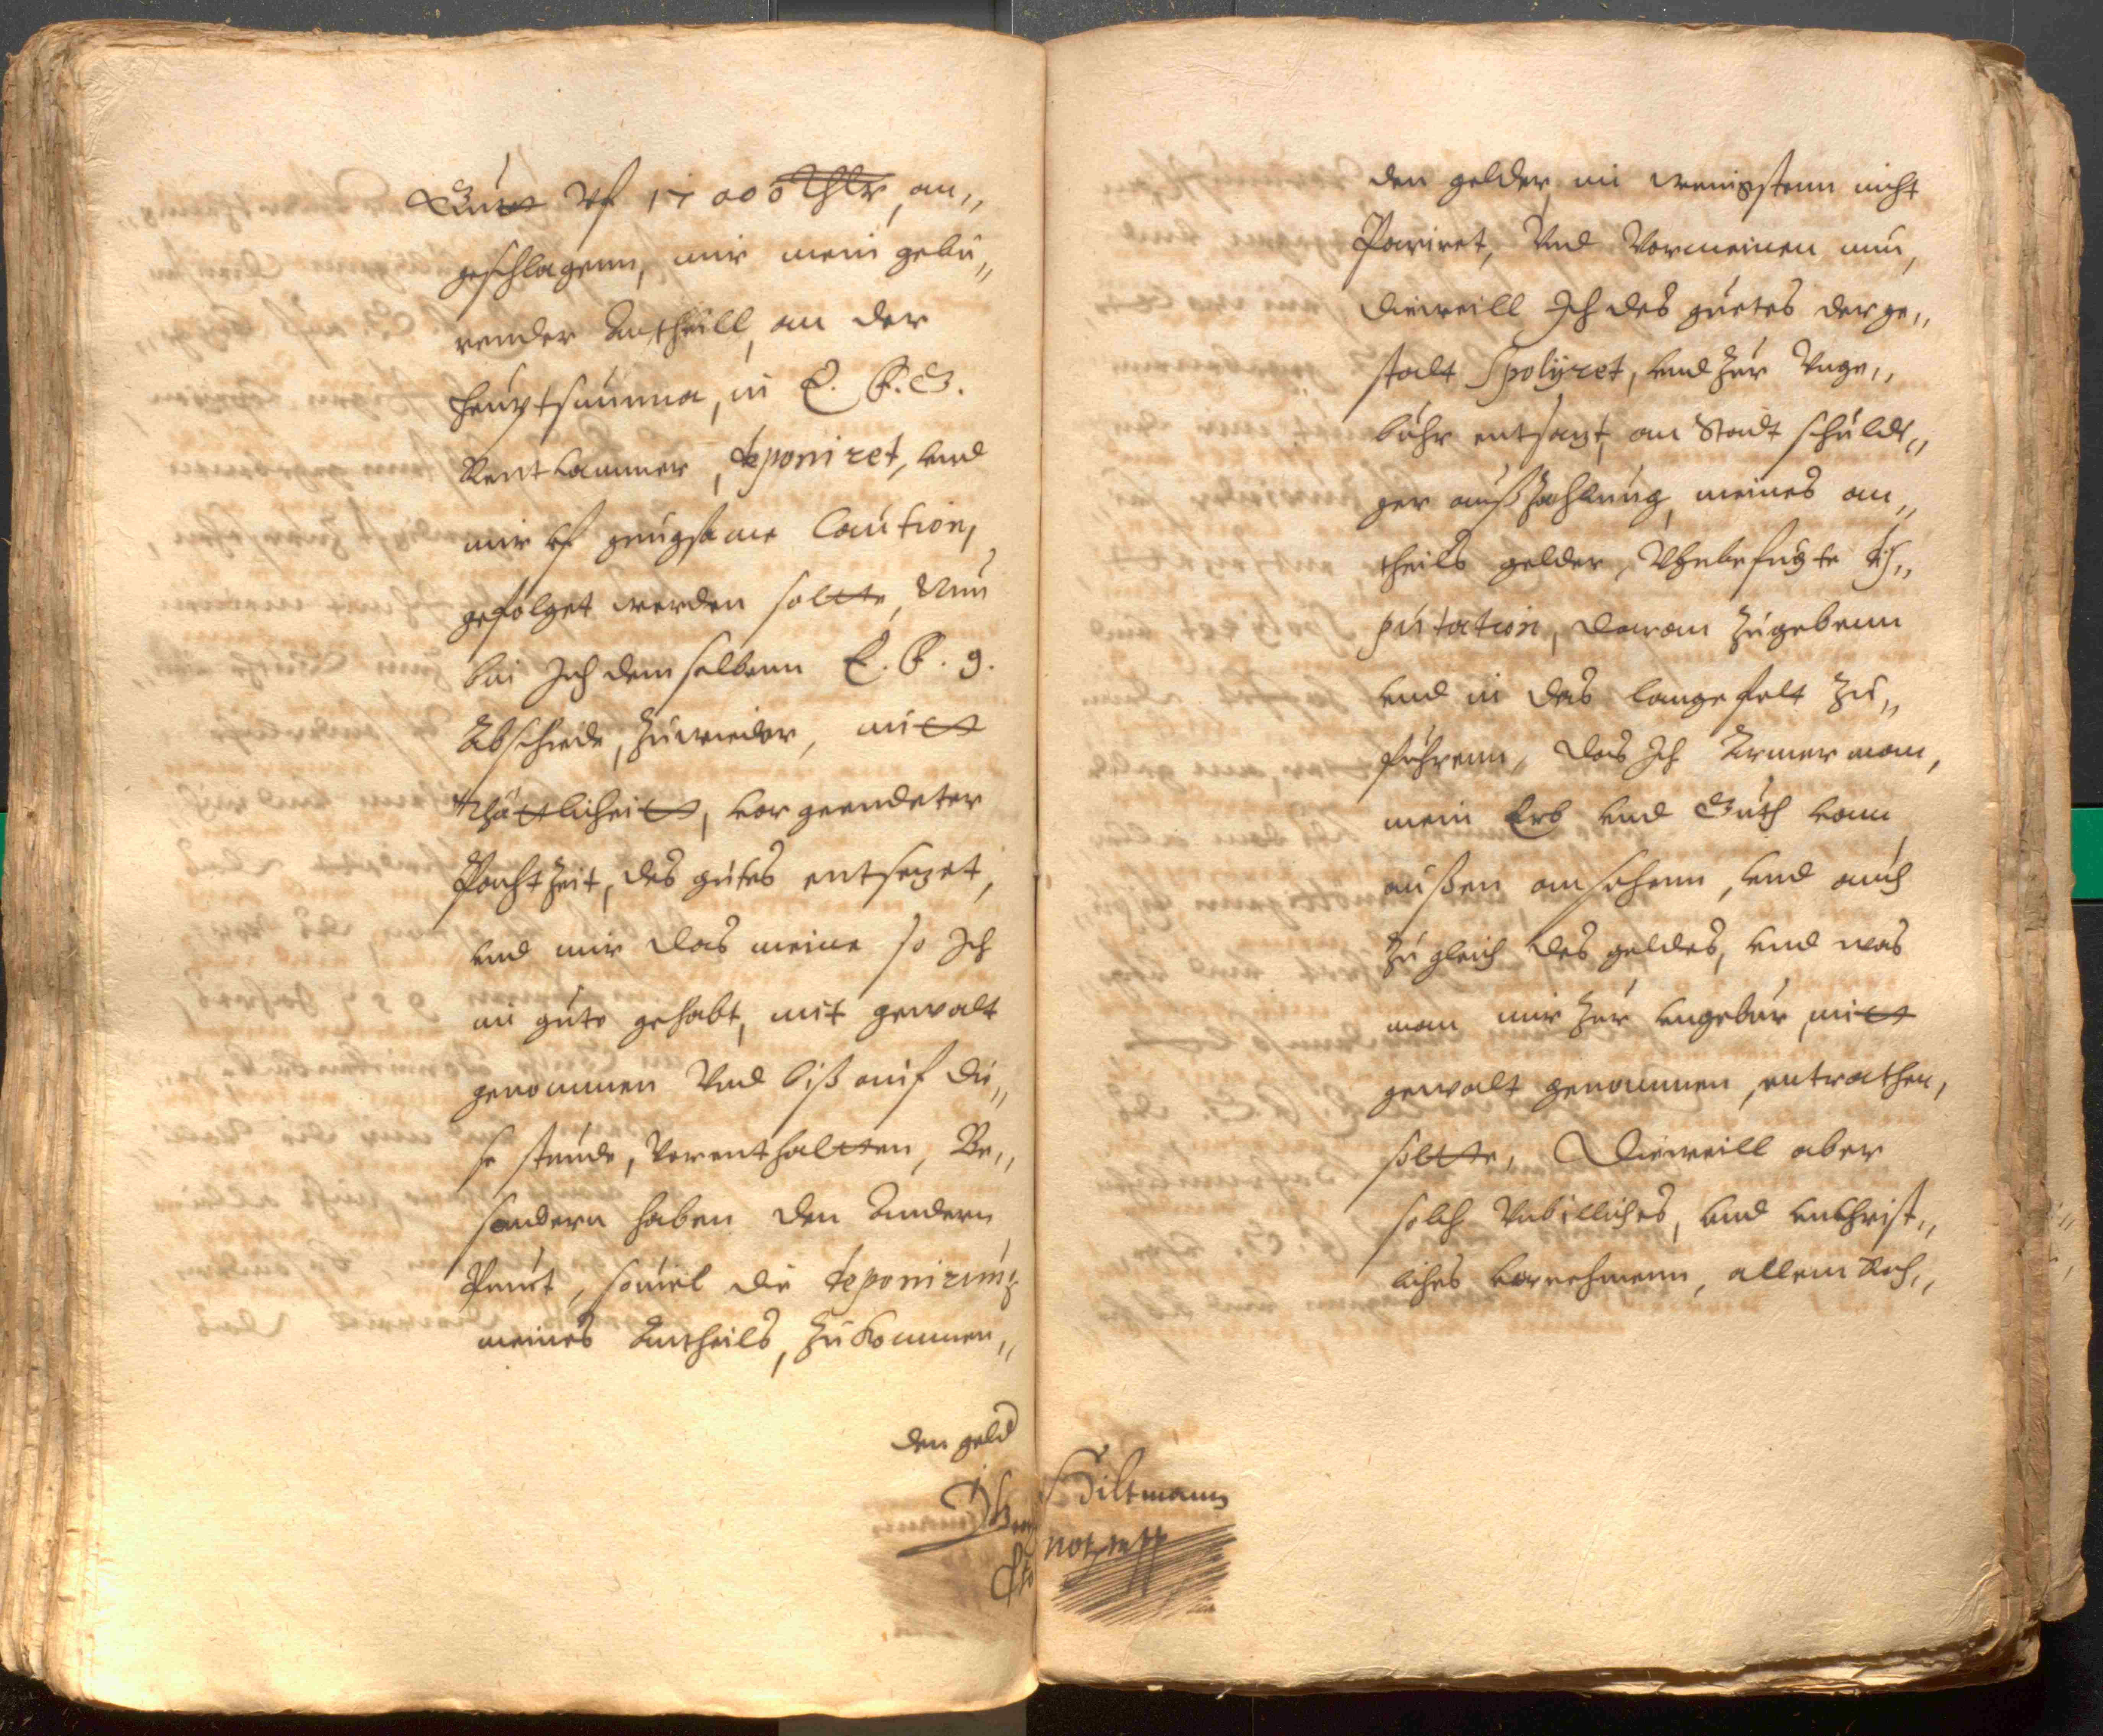 Gutt Vf 17000 Thlr, an„
geschlagenn, mir mein gebu„
render Antheill, an der
heuptsumma, in E. F. G.
Rentkammer, deponiret, vnd
mir vf gnugsame Caution,
gefolget werden sollte, Nun
bin Ich demselbenn E. F. g.
Abschiede, zuwieder, mitt
thättlicheitt, vor geendeter
Pachtzeit, des gutes entsezet,
vnd mir das meine so Ich
im gute gehabt, mit gewalt
genommen Vnd biß auf die„
se stunde, Vorenthaltten, Be„
sondern haben den Andern
Punct, souiel die deponirung
meines Antheils, zukommen„
den geld
den gelder im wenigstenn nicht
Pariret, Vnd Vormeinen nun,
dieweill Ich des guetes derge„
stalt Spolyret, vnd zur Vnge„
buhr entsazt, an Stadt schuldi„
ger außzahlung meines an„
theils gelder, Vhnbefugte dis„
putation, daran zugebenn
vnd in das lange felt zu„
fuhrenn, das Ich Armer man,
mein Erb vnd Guth vonn
außen ansehenn, vnd auch
zugleich des geldes, vnd was
man mir zur vngebur, mitt
gewalt genommen, entrathen,
soltte, Dieweill aber
solch Vnbilliches, vnd vnchrist„
liches vornehmenn, allem Rech„
Hiltmann
not